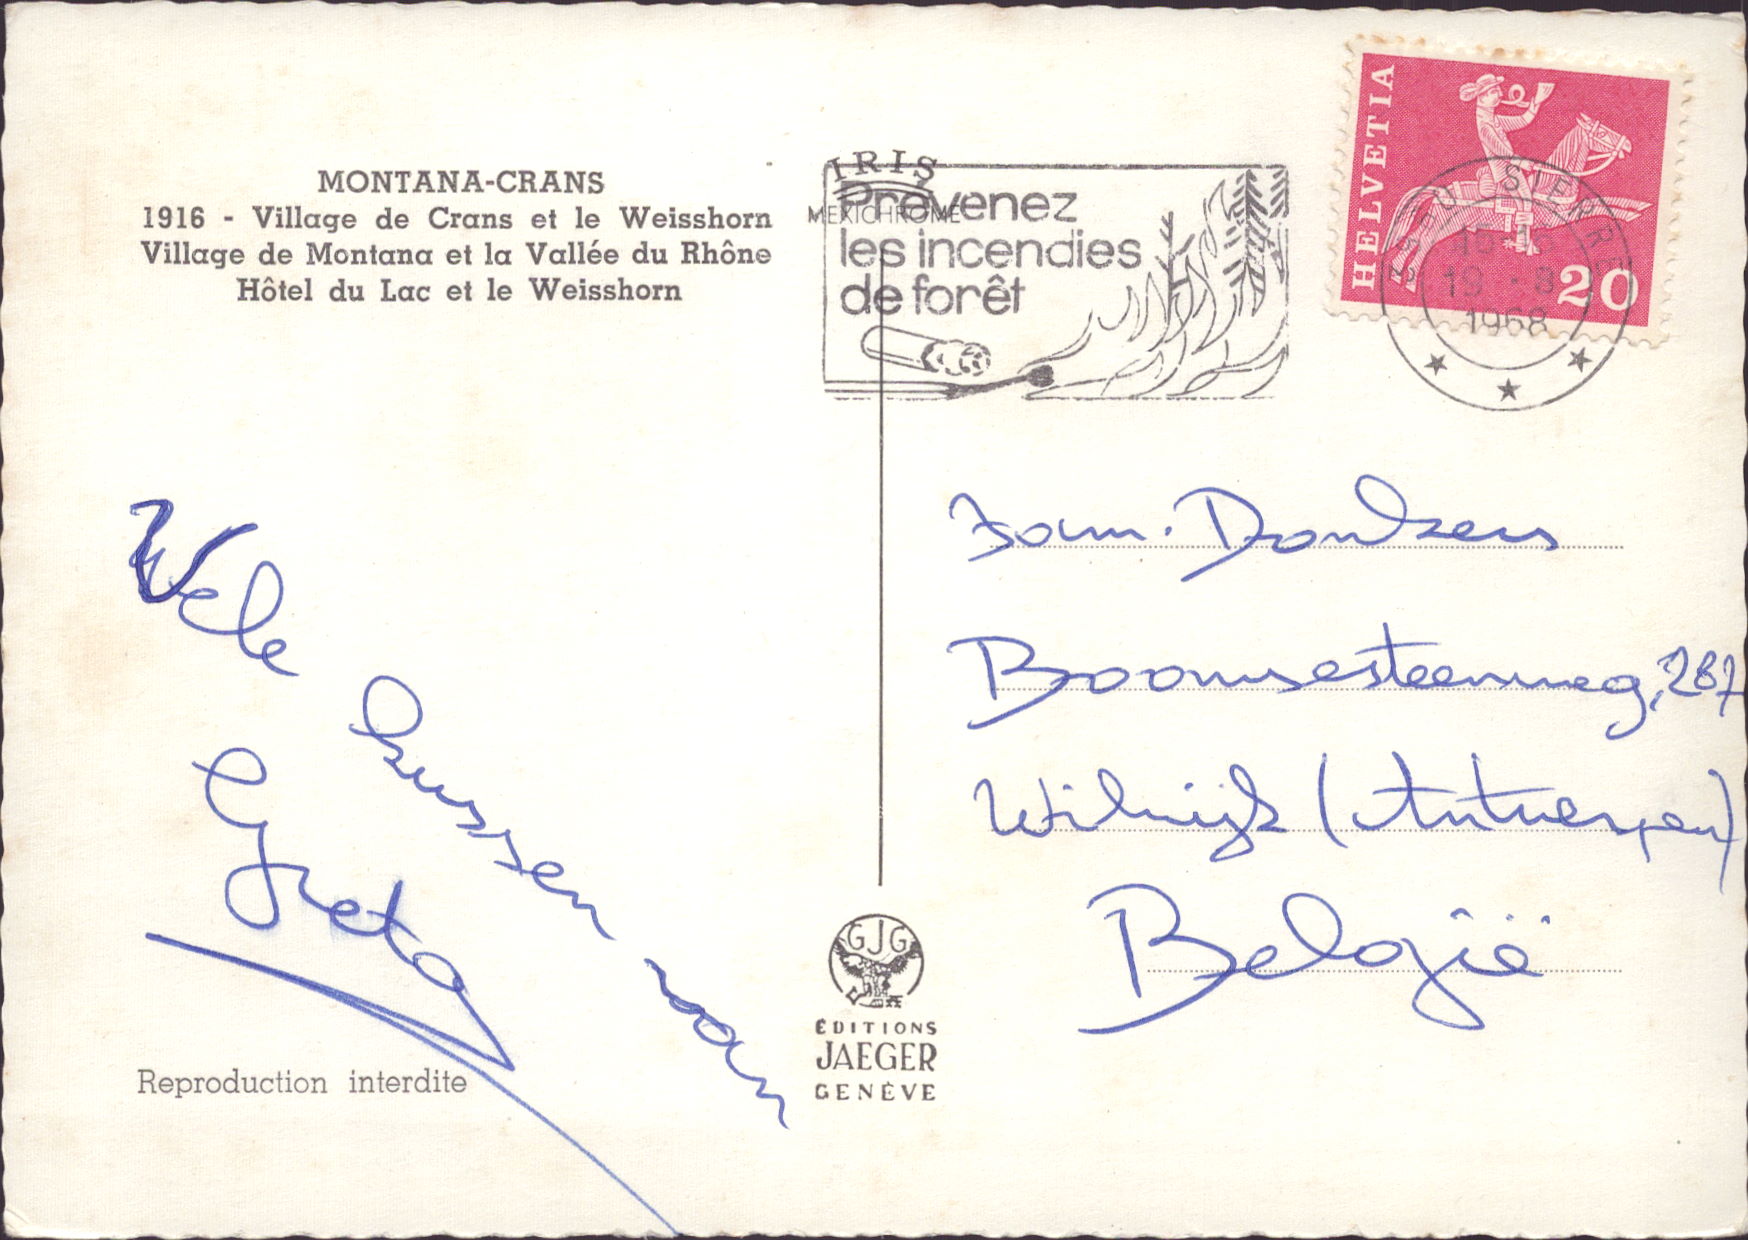 MONTANA-CRANS
1916 - Village de Crans et le Weisshorn
Village de Montana et la Vallée du Rhône
Hôtel du Lac et le Weisshorn
IRIS
MEXICHROME
Prévenez
les incendies
de forêt
HELVETIA
20
3960 SIERRE
19.-8
1968
Vele kussen van
Greta
Fam. Donkers
Boomsesteenweg, 287
Wilrijk (Antwerpen)
België
GJG
ÉDITIONS
JAEGER
GENÈVE
Reproduction interdite